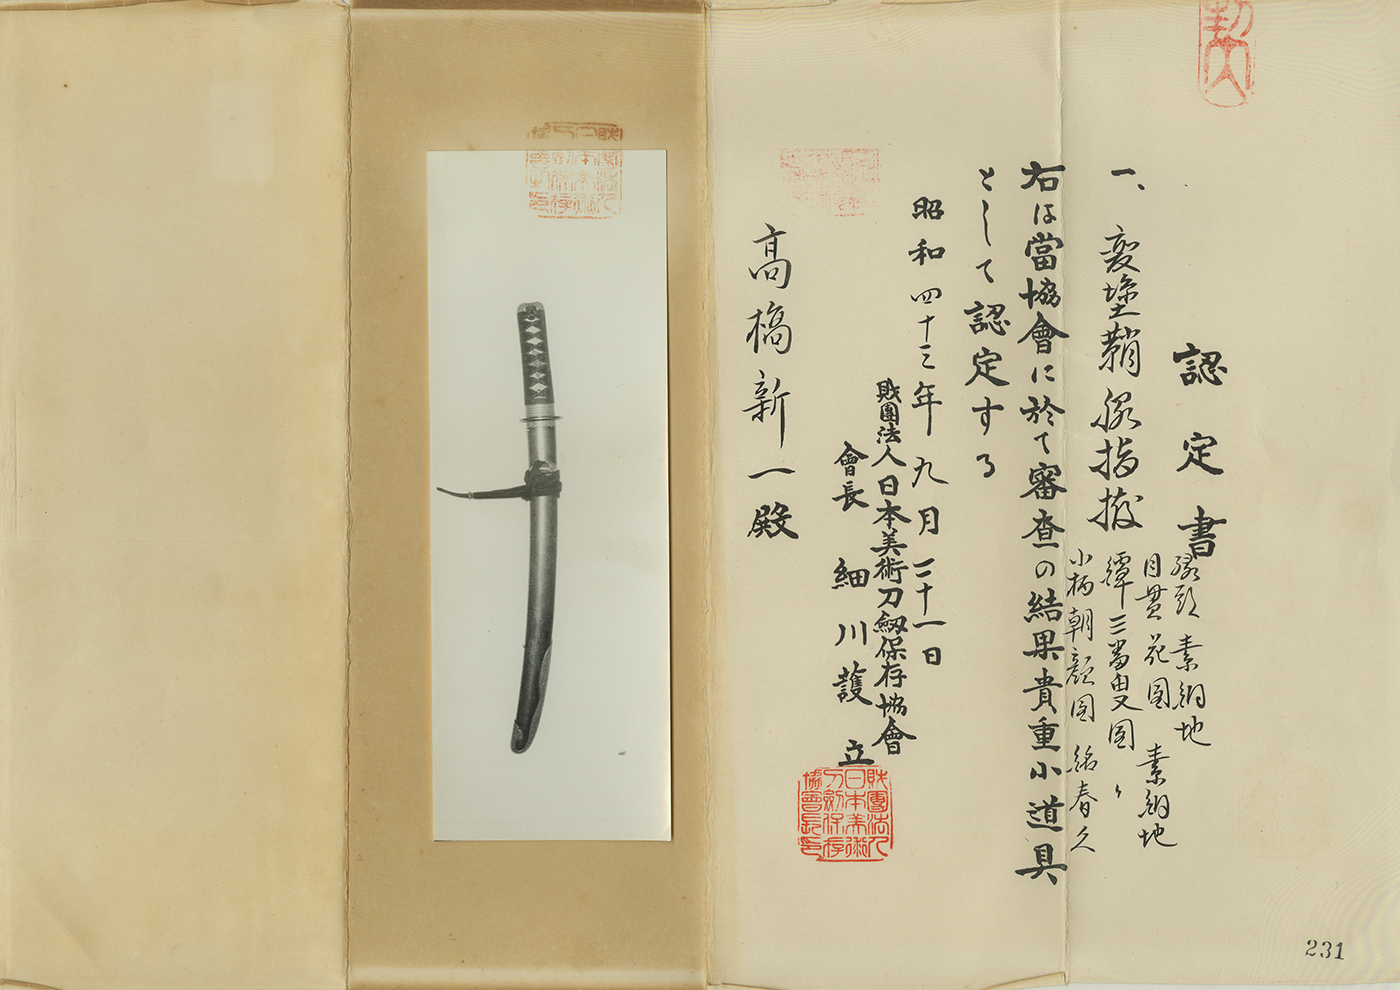 認定書
一、変塗鞘脇指拵
縁頭 素銅地
目貫 花図 素銅地
鐔 三番叟図 〃
小柄 朝顔図 銘春久
右は當協會に於て審査の結果貴重小道具
として認定する
昭和四十三年九月二十一日
財團法人日本美術刀劔保存協會
會長 細川護立
財團法人日本美術刀劔保存協會長印
高橋新一殿
231